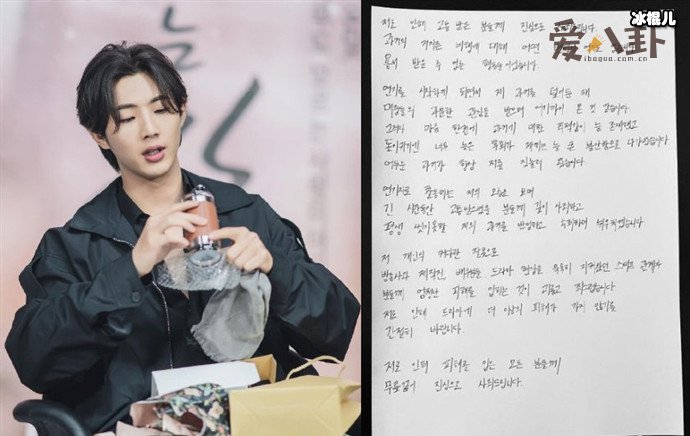 冰棍儿
爱八卦
ibagua.com.cn
저로 인해 고통 받은 분들께 진심으로
과거의 저지른 비행에 대해 어떤
용서 받을 수 없는 행동들이었습니다.
연기를 시작하게 되면서 제 과거를 덮어둔 채
대중들의 과분한 관심을 받으며 여기까지 온 것 같습니다.
그러나 마음 한켠에 과거에 대한 죄책감이 늘 존재했고
돌이키기엔 너무 늦은 후회가 저에게는 늘 큰 불안함으로 다가왔습니다.
어두운 과거가 항상 저를 짓눌러 왔습니다.
연기자로 활동하는 저의 모습을 보며
긴 시간동안 고통받으셨을 분들께 깊이 사죄하고
평생 씻지못할 저의 과거를 반성하고 속죄하며
저 개인의 커다란 잘못으로
방송사와 제작진, 배우들 드라마 현장을 묵묵히 지켜왔던 스태프 관계자
분들께 엄청난 피해를 입히는 것이 괴롭고 죄스럽습니다
저로 인해 드라마에 더 이상의 피해가 가지 않기를
간절히 바랍니다.
저로 인해 피해를 입은 모든 분들께
무릎꿇어 진심으로 사죄드립니다.